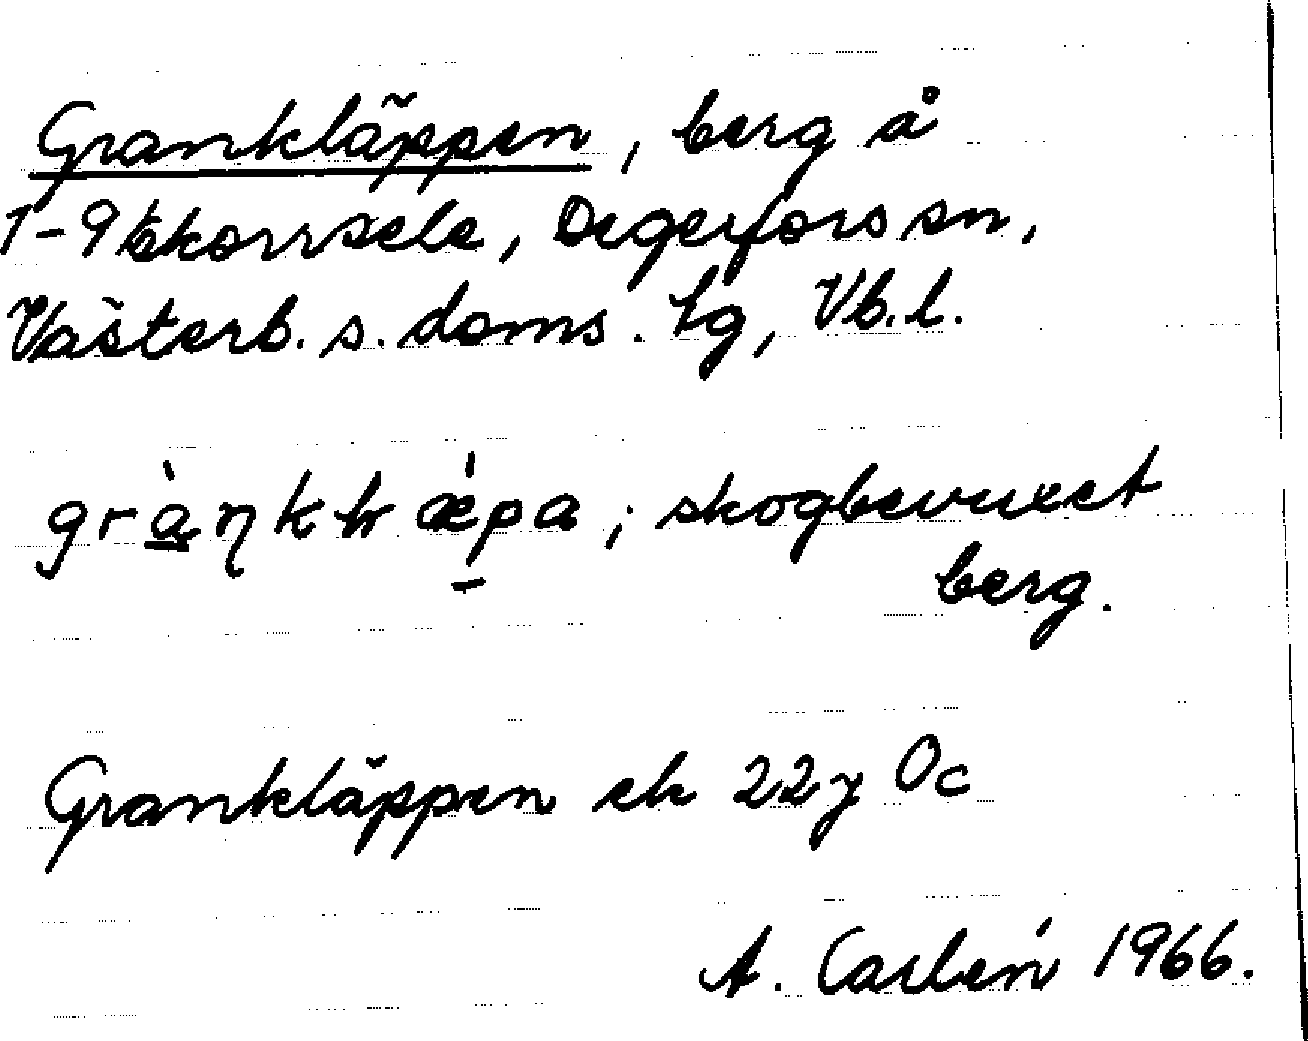 Grankläppen, berg å
1-9 Ekorrsele, Degerfors sn,
Västerb. s. doms. tg, Vb. l.
skogbevuxet
berg.
Grankläppen ek 22 y Oc
A. Carlén 1966.